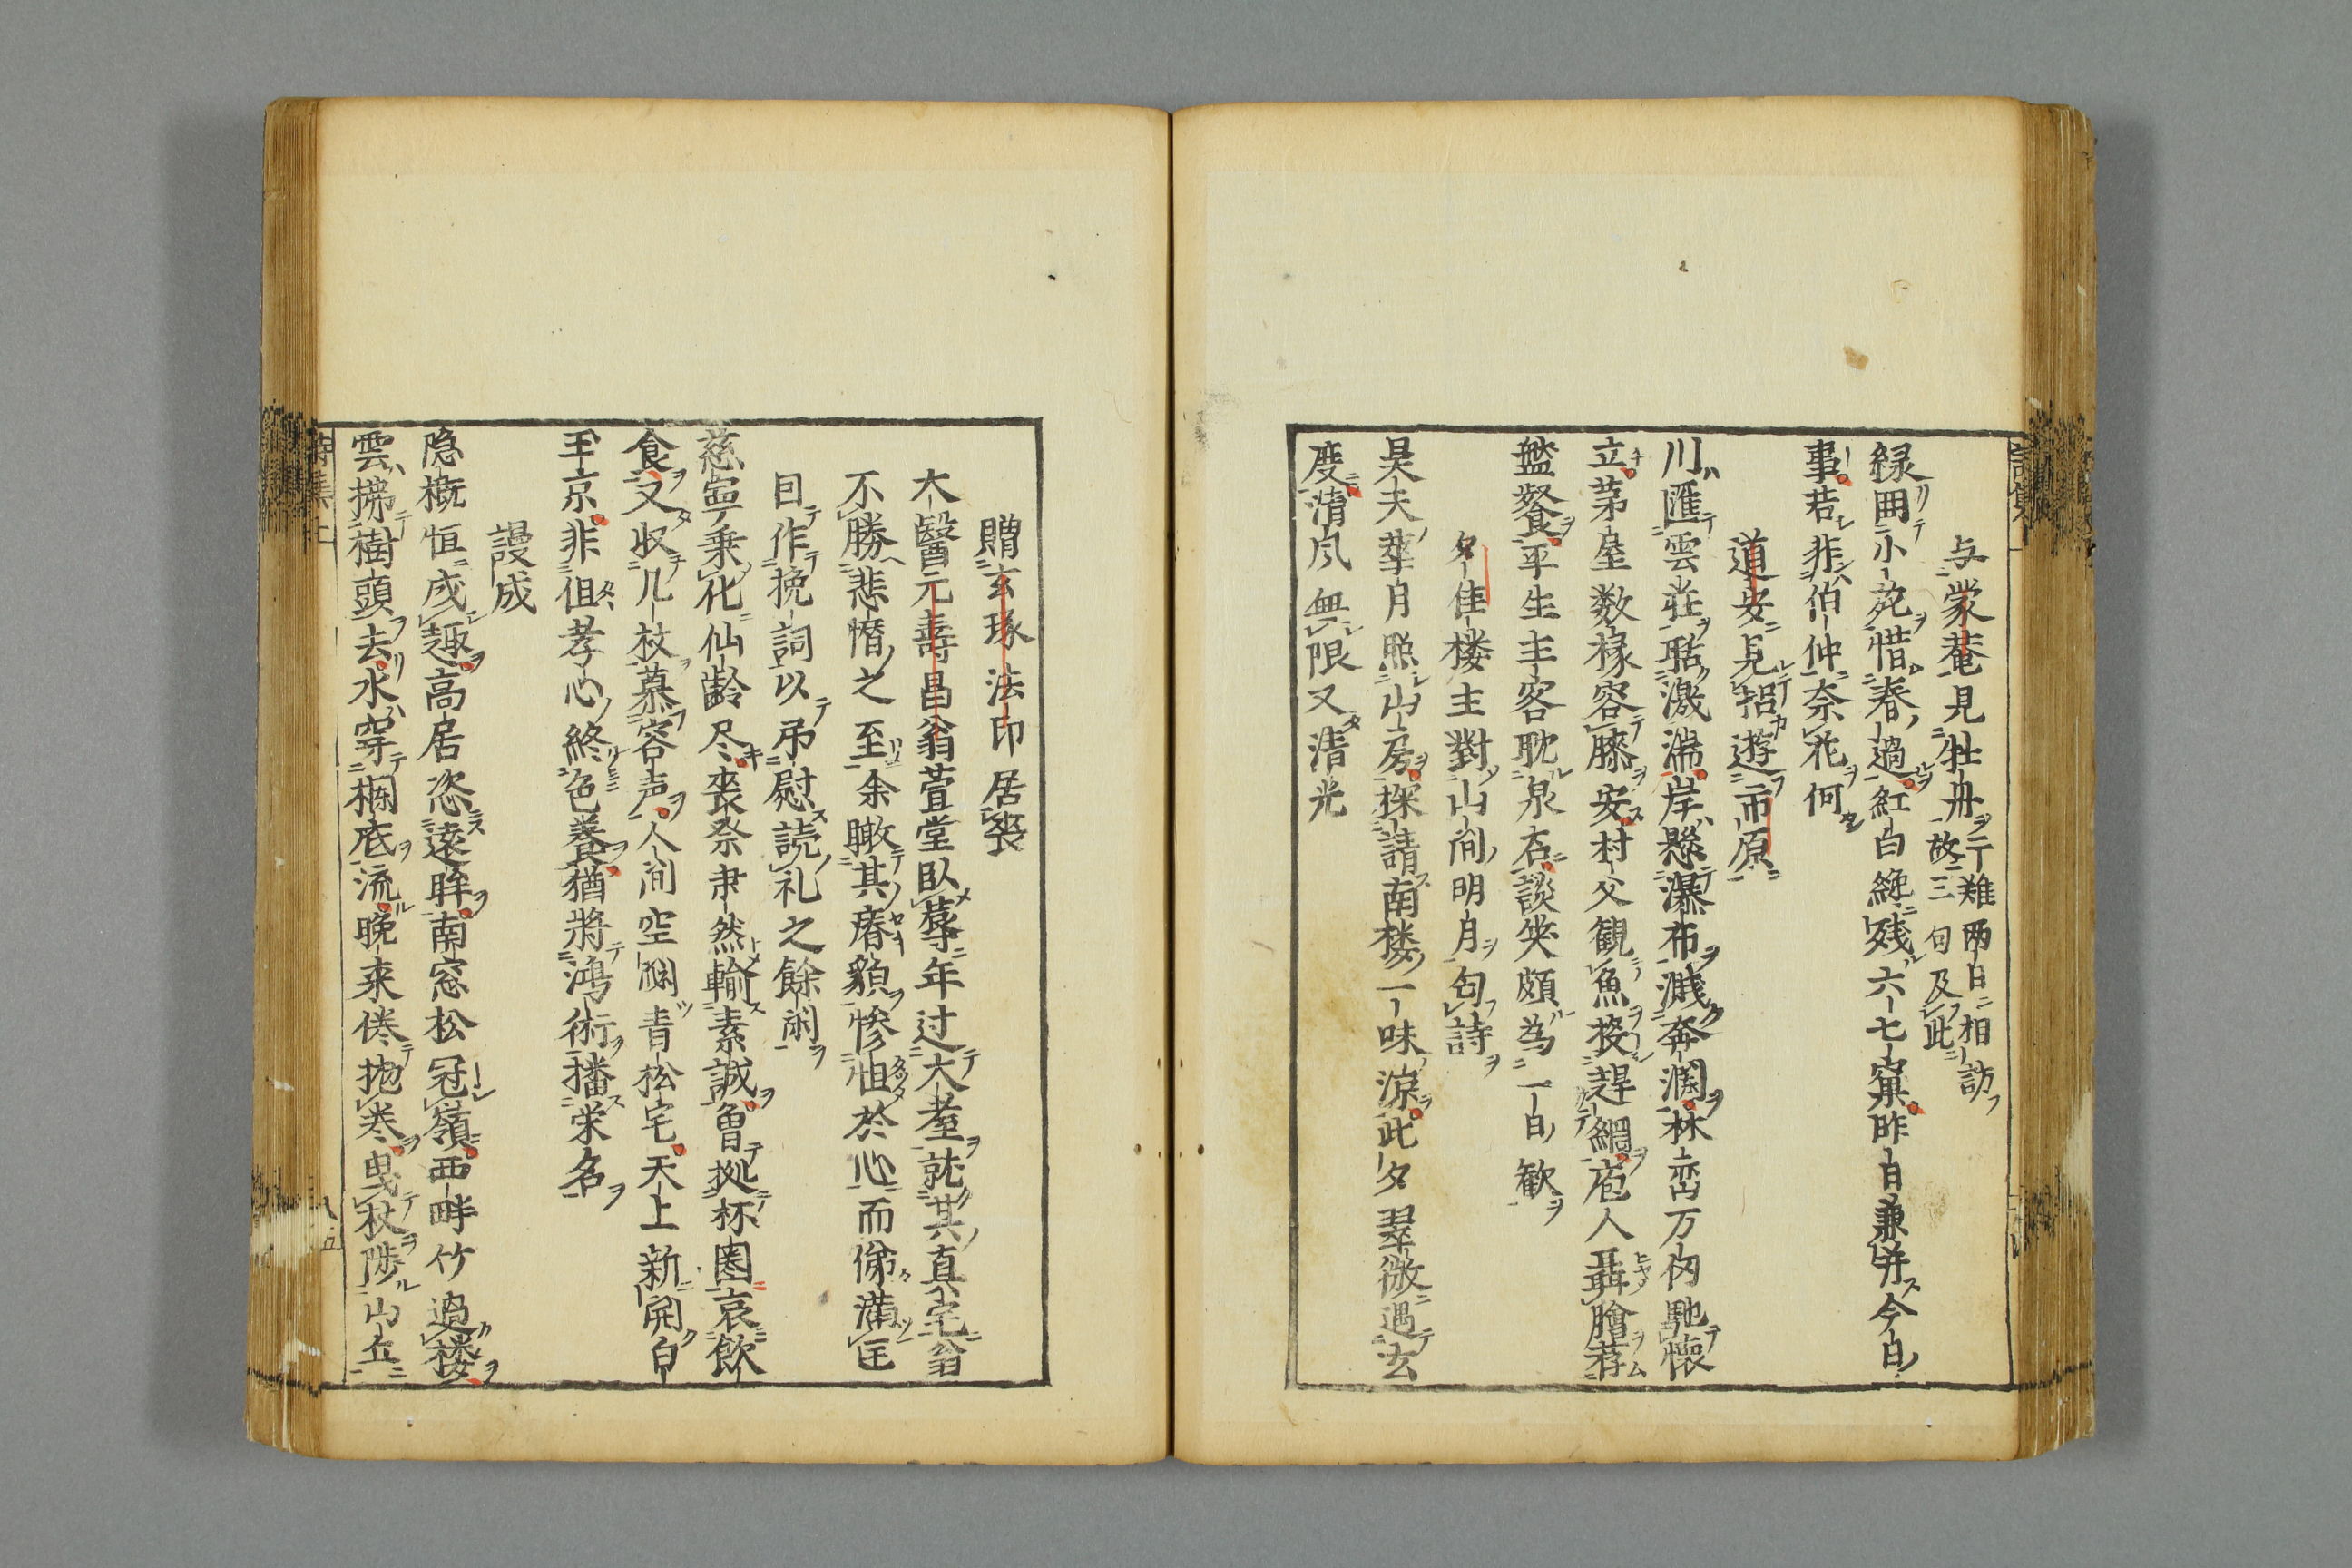 与蒙菴見牡丹 二難両日相訪
故三句及此
緑囲小苑惜春過紅白纔残六七窠昨日兼併今日
事若非伯仲奈花何
道安見招遊市原
川匯雲荘聒激湍岸懸瀑布濺奔瀾林巒万内馳懐
立茅屋数椽容膝安村父観魚投趕網庖人聶膾荐
盤餐平生主客耽泉石談笑頗為一日歓
夕佳楼主対山間明月句詩
昊天華月照山房探請南楼一味涼此夕翠微遇玄
度清風無限又清光
贈玄琢法印居喪
大醫元壽昌翁萱堂臥蓐年过大耋就其真宅翁
不勝悲惜之至余瞰其瘠貌惨怛於心而俤満匡
目作挽詞以弔慰読礼之餘閑
慈寧乗化仙齢尽喪祭肅然輸素誠魯拠杯圏哀飲
食又収几杖慕容声人間空閟青松宅天上新開白
玉京非但孝心終色養猶将鴻術播栄名
謾成
隐槪恒成趣高居恣遠眸南窓松冠嶺西畔竹過楼
雲拂樹頭去水穿橺底流晩来倦抛巻曳杖陟山丘
詩集上